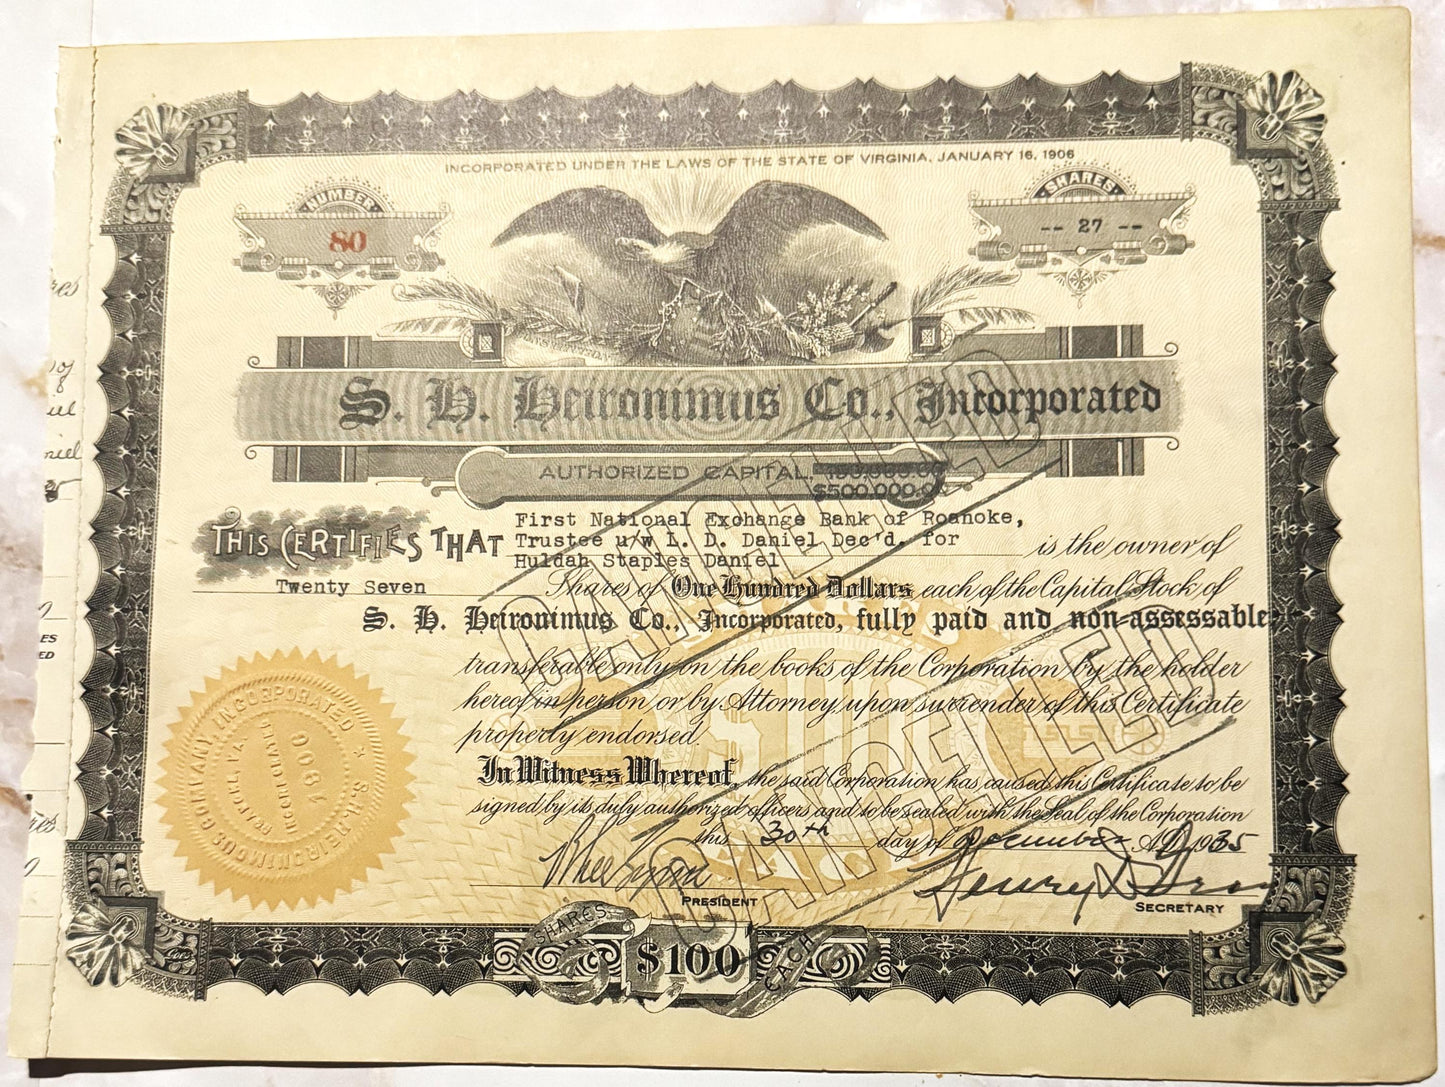 INCORPORATED UNDER THE LAWS OF THE STATE OF VIRGINIA, JANUARY 16, 1906
NUMBER
80
SHARES
-- 27 --
S. H. Heironimus Co., Incorporated
AUTHORIZED CAPITAL, 150,000.00
$500,000.00
THIS CERTIFIES THAT
First National Exchange Bank of Roanoke,
Trustee u/w L. D. Daniel Dec'd. for
Huldah Staples Daniel
is the owner of
Twenty Seven Shares of One Hundred Dollars each of the Capital Stock of
S. H. Heironimus Co., Incorporated, fully paid and non-assessable
transferable only on the books of the Corporation by the holder
hereof in person or by Attorney upon surrender of this Certificate
properly endorsed.
In Witness Whereof, the said Corporation has caused this Certificate to be
signed by its duly authorized officers and to be sealed with the Seal of the Corporation
this 30th day of November A.D. 1935
PRESIDENT
SECRETARY
SHARES
$100
EACH
CANCELLED
CANCELLED
S. H. HEIRONIMUS COMPANY, INCORPORATED
ROANOKE, VA.
1906
ES
ED